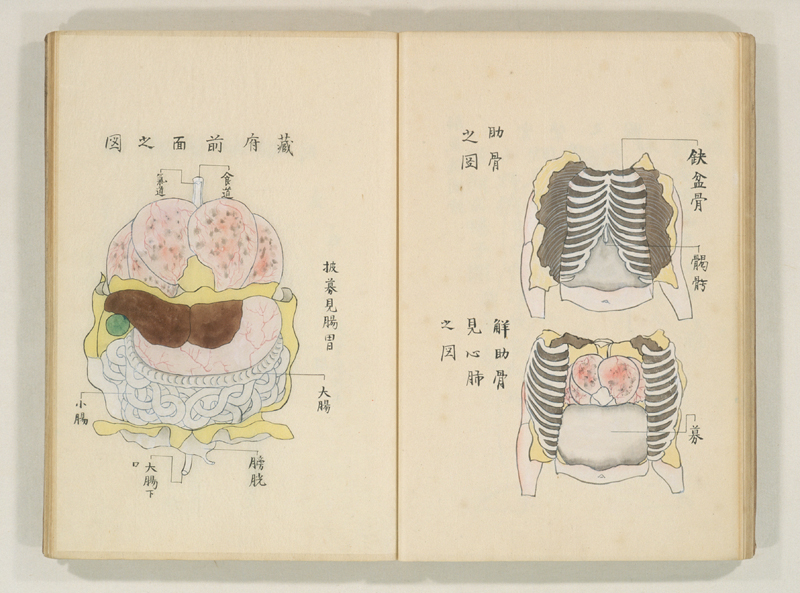 肋骨
之図
缺盆骨
𩩲骬
觧肋骨
見心肺
之図
募
藏府前面之図
食道
氣道
披募見腸胃
大腸
小腸
膀胱
大腸下
口